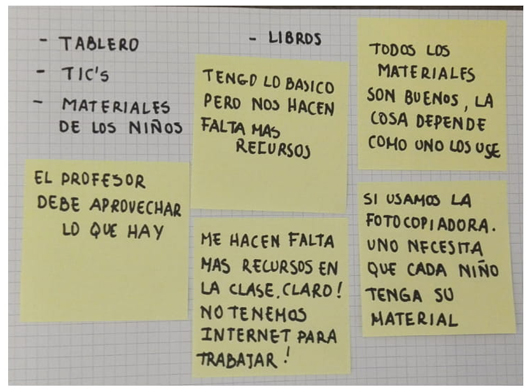 - TABLERO
- TIC'S
- MATERIALES
DE LOS NIÑOS
- LIBROS
TENGO LO BASICO
PERO NOS HACEN
FALTA MAS
RECURSOS
TODOS LOS
MATERIALES
SON BUENOS, LA
COSA DEPENDE
COMO UNO LOS USE
EL PROFESOR
DEBE APROVECHAR
LO QUE HAY
ME HACEN FALTA
MAS RECURSOS EN
LA CLASE, CLARO!
NO TENEMOS
INTERNET PARA
TRABAJAR!
SI USAMOS LA
FOTOCOPIADORA.
UNO NECESITA
QUE CADA NIÑO
TENGA SU
MATERIAL